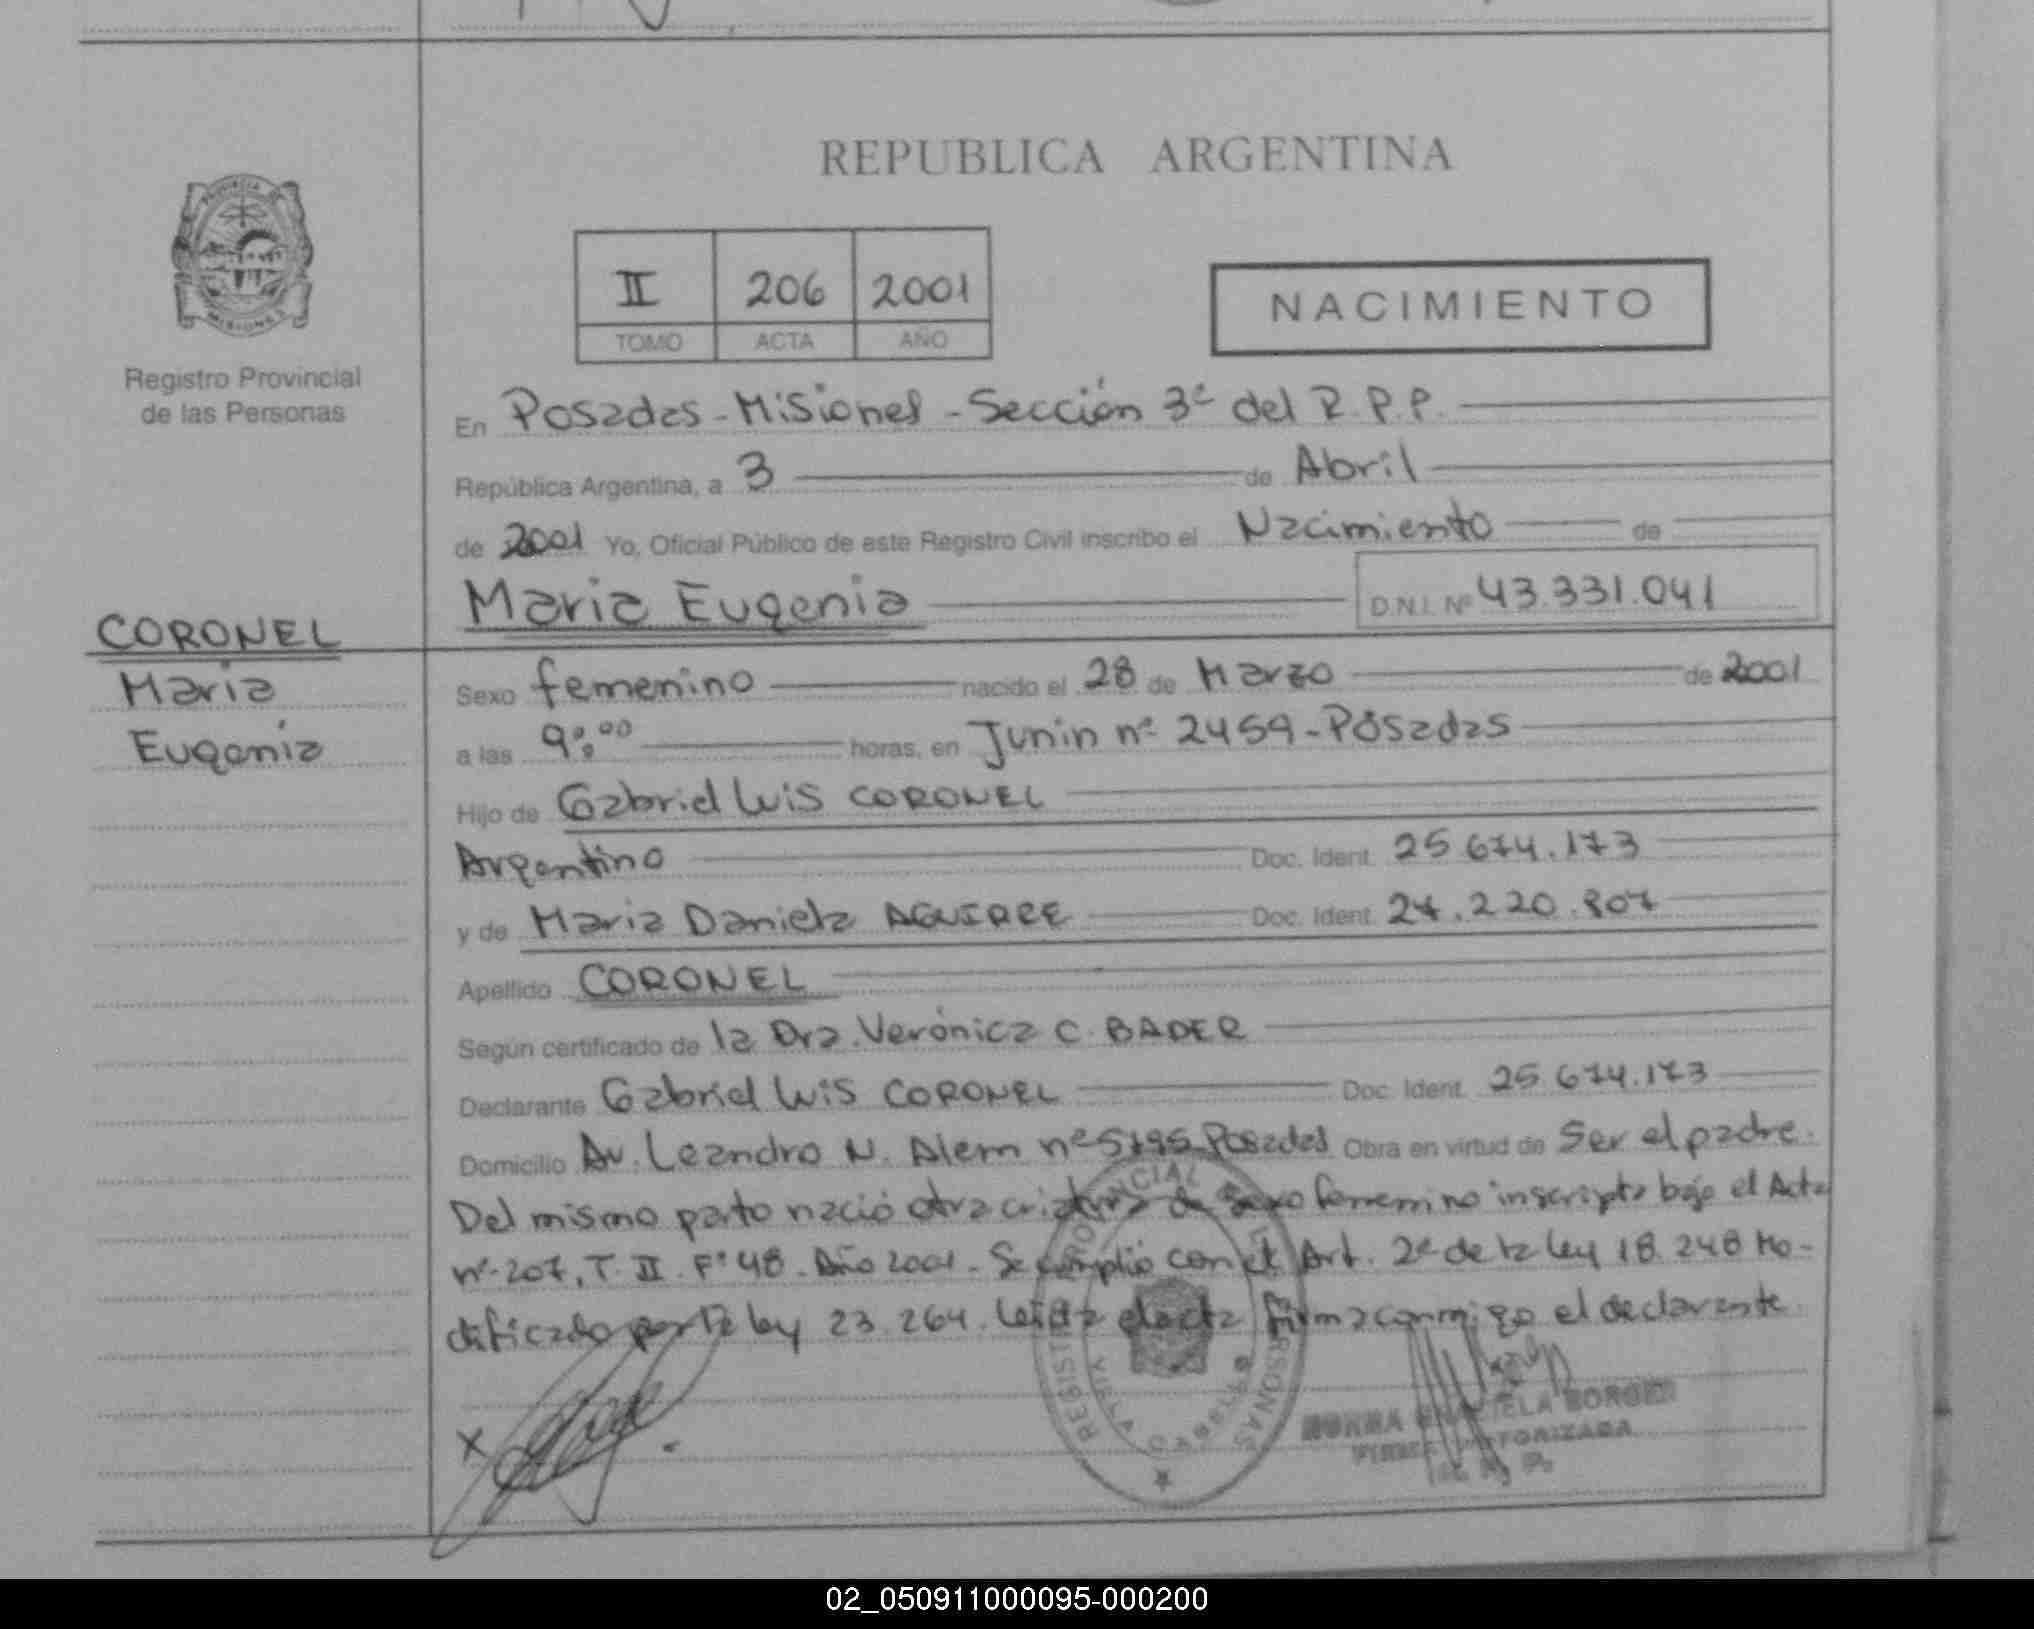 REPUBLICA ARGENTINA
PROVINCIA DE
MISIONES
Registro Provincial
de las Personas
II 206 2001
TOMO ACTA AÑO
NACIMIENTO
En Posadas - Misiones - Sección 3ª del R.P.P.
República Argentina, a 3 de Abril
de 2001 Yo, Oficial Público de este Registro Civil inscribo el Nacimiento de
Maria Eugenia D.N.I. Nº 43.331.041
CORONEL
Maria
Eugenia
Sexo femenino nacido el 28 de Marzo de 2001
a las 9:00 horas, en Junin nº 2459 - Posadas
Hijo de Gabriel Luis CORONEL
Argentino Doc. Ident. 25.674.173
y de Maria Daniela AGUIRRE Doc. Ident. 27.220.807
Apellido CORONEL
Según certificado de la Dra. Verónica C. BADER
Declarante Gabriel Luis CORONEL Doc. Ident. 25.674.173
Domicilio Av. Leandro N. Alem nº Posadas Obra en virtud de Ser el padre.
Del mismo parto nació otra criatura de sexo femenino inscripta bajo el Acta
nº 207, T. II. Fº 48. Año 2001. Se cumplió con el Art. 2º de la ley 18.248 Mo-
dificado por la ley 23.264. Leída el acta firma conmigo el declarante
X
NORMA GRACIELA
FIRMA AUTORIZADA
R. P. P.
02_050911000095-000200